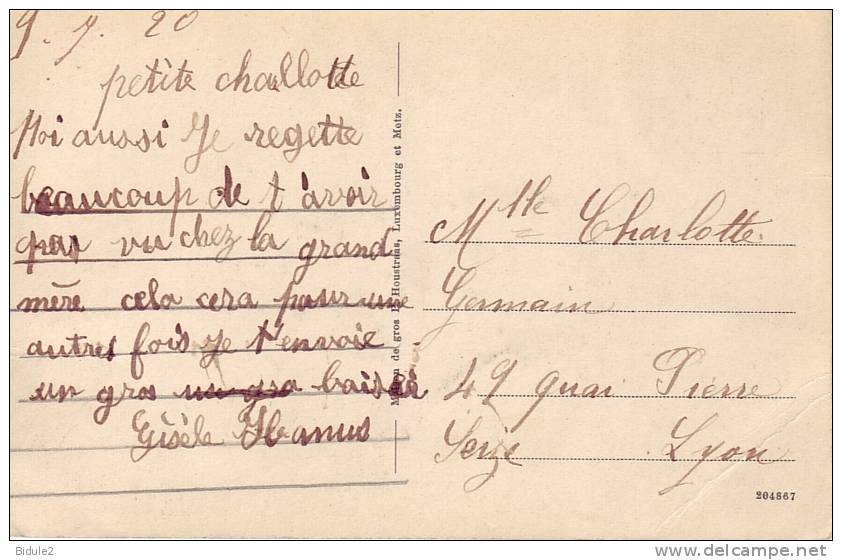 9. 7. 20
petite challotte
Moi aussi Je regette
beaucoup de t avoir
pas vu chez la grand
mère cela cera pour une
autres fois Je t'envoie
un gros un gro baisé
Gisèle Hanus
Maison de gros P. Houstraas, Luxembourg et Metz.
Mlle Charlotte
Germain
49 quai Pierre
Seize Lyon
204867
Bidule2
www.delcampe.net